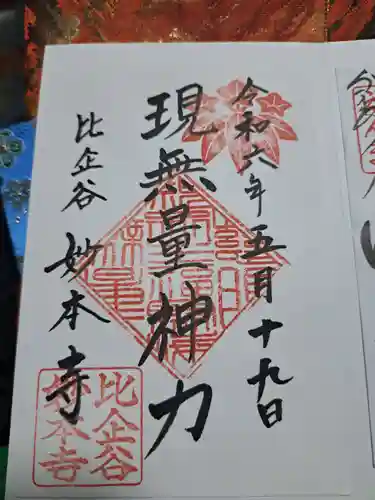 令和六年五月十九日
現無量神力
比企谷 妙本寺
比企谷
妙本寺